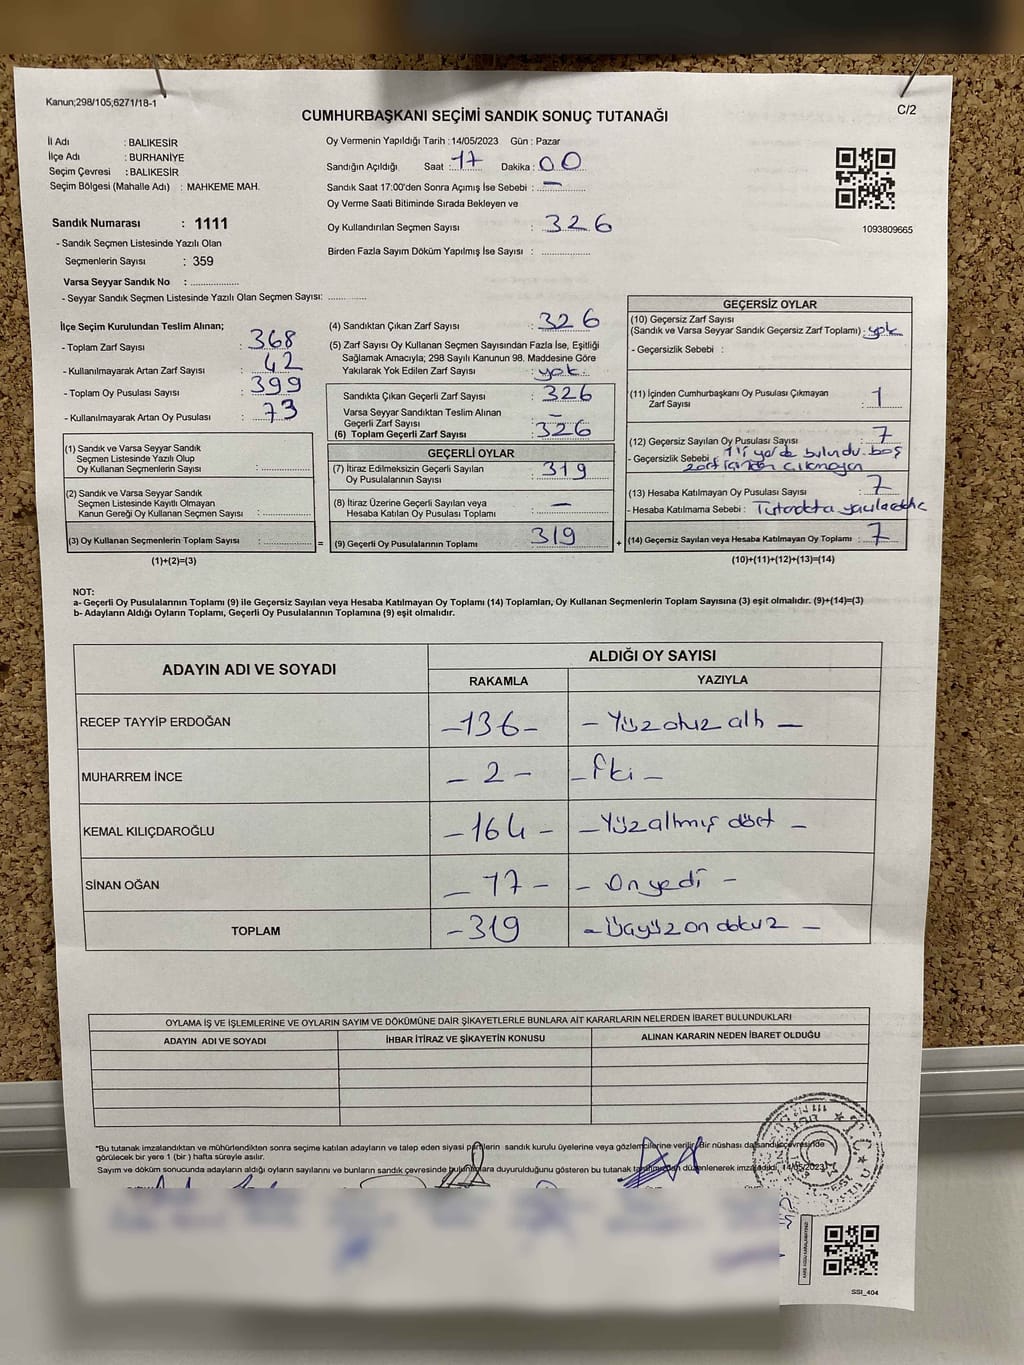 Kanun;298/105;6271/18-1
C/2
CUMHURBAŞKANI SEÇİMİ SANDIK SONUÇ TUTANAĞI
İl Adı : BALIKESİR
İlçe Adı : BURHANİYE
Seçim Çevresi : BALIKESİR
Seçim Bölgesi (Mahalle Adı) : MAHKEME MAH.
Sandık Numarası : 1111
- Sandık Seçmen Listesinde Yazılı Olan
Seçmenlerin Sayısı : 359
Varsa Seyyar Sandık No : ..................
- Seyyar Sandık Seçmen Listesinde Yazılı Olan Seçmen Sayısı: ..............
Oy Vermenin Yapıldığı Tarih : 14/05/2023 Gün : Pazar
Sandığın Açıldığı Saat : 17 Dakika : 00
Sandık Saat 17:00'den Sonra Açımış İse Sebebi : —
Oy Verme Saati Bitiminde Sırada Bekleyen ve
Oy Kullandırılan Seçmen Sayısı : 326
Birden Fazla Sayım Döküm Yapılmış İse Sayısı : ..................
1093809665
İlçe Seçim Kurulundan Teslim Alınan;
- Toplam Zarf Sayısı : 368
- Kullanılmayarak Artan Zarf Sayısı : 42
- Toplam Oy Pusulası Sayısı : 399
- Kullanılmayarak Artan Oy Pusulası : 73
(1) Sandık ve Varsa Seyyar Sandık
Seçmen Listesinde Yazılı Olup
Oy Kullanan Seçmenlerin Sayısı :
(2) Sandık ve Varsa Seyyar Sandık
Seçmen Listesinde Kayıtlı Olmayan
Kanun Gereği Oy Kullanan Seçmen Sayısı :
(3) Oy Kullanan Seçmenlerin Toplam Sayısı :
=
(1)+(2)=(3)
(4) Sandıktan Çıkan Zarf Sayısı : 326
(5) Zarf Sayısı Oy Kullanan Seçmen Sayısından Fazla İse, Eşitliği
Sağlamak Amacıyla; 298 Sayılı Kanunun 98. Maddesine Göre
Yakılarak Yok Edilen Zarf Sayısı : yok
Sandıkta Çıkan Geçerli Zarf Sayısı : 326
Varsa Seyyar Sandıktan Teslim Alınan
Geçerli Zarf Sayısı : —
(6) Toplam Geçerli Zarf Sayısı : 326
GEÇERLİ OYLAR
(7) İtiraz Edilmeksizin Geçerli Sayılan
Oy Pusulalarının Sayısı : 319
(8) İtiraz Üzerine Geçerli Sayılan veya
Hesaba Katılan Oy Pusulası Toplamı : —
(9) Geçerli Oy Pusulalarının Toplamı : 319
+
GEÇERSİZ OYLAR
(10) Geçersiz Zarf Sayısı
(Sandık ve Varsa Seyyar Sandık Geçersiz Zarf Toplamı) : yok
- Geçersizlik Sebebi :
(11) İçinden Cumhurbaşkanı Oy Pusulası Çıkmayan
Zarf Sayısı : 1
(12) Geçersiz Sayılan Oy Pusulası Sayısı : 7
- Geçersizlik Sebebi : yerde bulundu. boş
zarf içinden çıkmayan
(13) Hesaba Katılmayan Oy Pusulası Sayısı : 7
- Hesaba Katılmama Sebebi :
(14) Geçersiz Sayılan veya Hesaba Katılmayan Oy Toplamı : 7
(10)+(11)+(12)+(13)=(14)
NOT:
a- Geçerli Oy Pusulalarının Toplamı (9) ile Geçersiz Sayılan veya Hesaba Katılmayan Oy Toplamı (14) Toplamları, Oy Kullanan Seçmenlerin Toplam Sayısına (3) eşit olmalıdır. (9)+(14)=(3)
b- Adayların Aldığı Oyların Toplamı, Geçerli Oy Pusulalarının Toplamına (9) eşit olmalıdır.
ADAYIN ADI VE SOYADI ALDIĞI OY SAYISI
RAKAMLA YAZIYLA
RECEP TAYYİP ERDOĞAN –136– – Yüzotuz altı –
MUHARREM İNCE – 2 – – İki –
KEMAL KILIÇDAROĞLU –164– – Yüzaltmış dört –
SİNAN OĞAN – 17 – – Onyedi –
TOPLAM – 319 – Üçyüz on dokuz –
OYLAMA İŞ VE İŞLEMLERİNE VE OYLARIN SAYIM VE DÖKÜMÜNE DAİR ŞİKAYETLERLE BUNLARA AİT KARARLARIN NELERDEN İBARET BULUNDUKLARI
ADAYIN ADI VE SOYADI İHBAR İTİRAZ VE ŞİKAYETİN KONUSU ALINAN KARARIN NEDEN İBARET OLDUĞU
"Bu tutanak imzalandıktan ve mühürlendikten sonra seçime katılan adayların ve talep eden siyasi partilerin sandık kurulu üyelerine veya gözlemcilerine verilir. Bir nüshası da sandık çevresinde
görülecek bir yere 1 (bir ) hafta süreyle asılır.
Sayım ve döküm sonucunda adayların aldığı oyların sayılarını ve bunların sandık çevresinde bulunanlara duyurulduğunu gösteren bu tutanak tarafımızdan düzenlenerek imzalandı. 14/05/2023
SSI_404